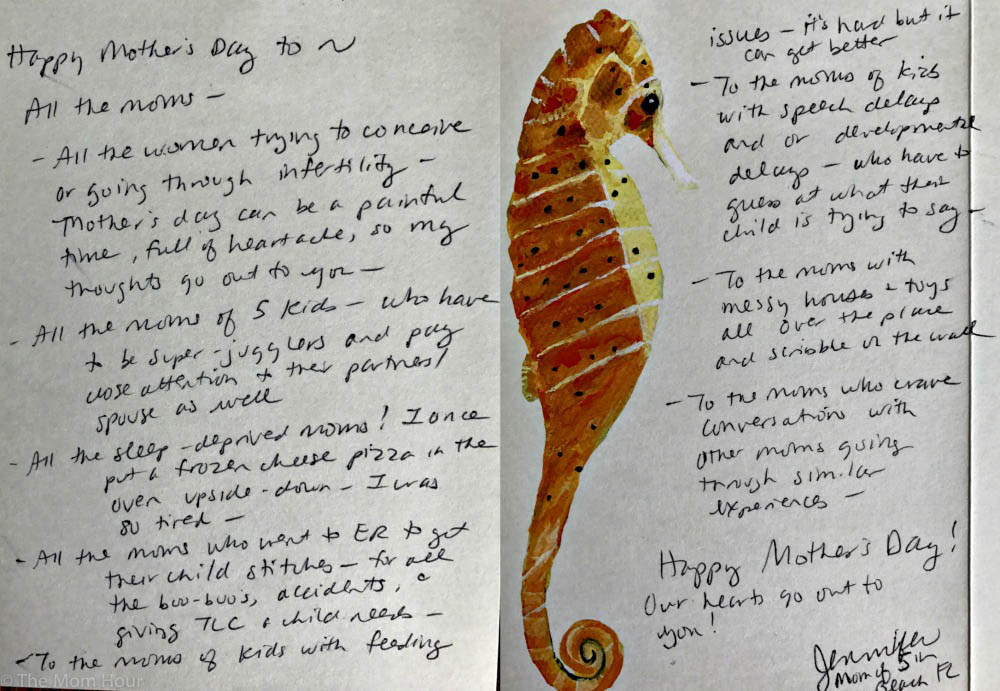 Happy Mother's Day to ~
All the moms –
- All the women trying to conceive
or going through infertility –
Mother's day can be a painful
time, full of heartache, so my
thoughts go out to you –
- All the moms of 5 kids – who have
to be super-jugglers and pay
close attention to their partners/
spouse as well
- All the sleep-deprived moms! I once
put a frozen cheese pizza in the
oven upside-down – I was
so tired –
- All the moms who went to ER to get
their child stitches – for all
the boo-boo's, accidents, &
giving TLC a child needs –
- To the moms of kids with feeding
issues – it's hard but it
can get better
- To the moms of kids
with speech delays
and or developmental
delays – who have to
guess at what their
child is trying to say –
- To the moms with
messy houses & toys
all over the place
and scribble on the wall
- To the moms who crave
conversations with
other moms going
through similar
experiences –
Happy Mother's Day!
Our hearts go out to
you!
Jennifer
Mom of 5 in
Beach FL
© The Mom Hour